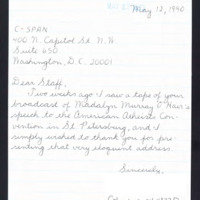 May 12, 1990
C-SPAN
400 N. Capitol St. N.W.
Suite 650
Washington, D.C. 20001
Dear Staff,
Two weeks ago I saw a tape of your
broadcast of Madalyn Murray O'Hair's
speech to the American Atheist Con-
vention in St. Petersburg, and I
simply wished to thank you for pre-
senting that very eloquent address.
Sincerely,